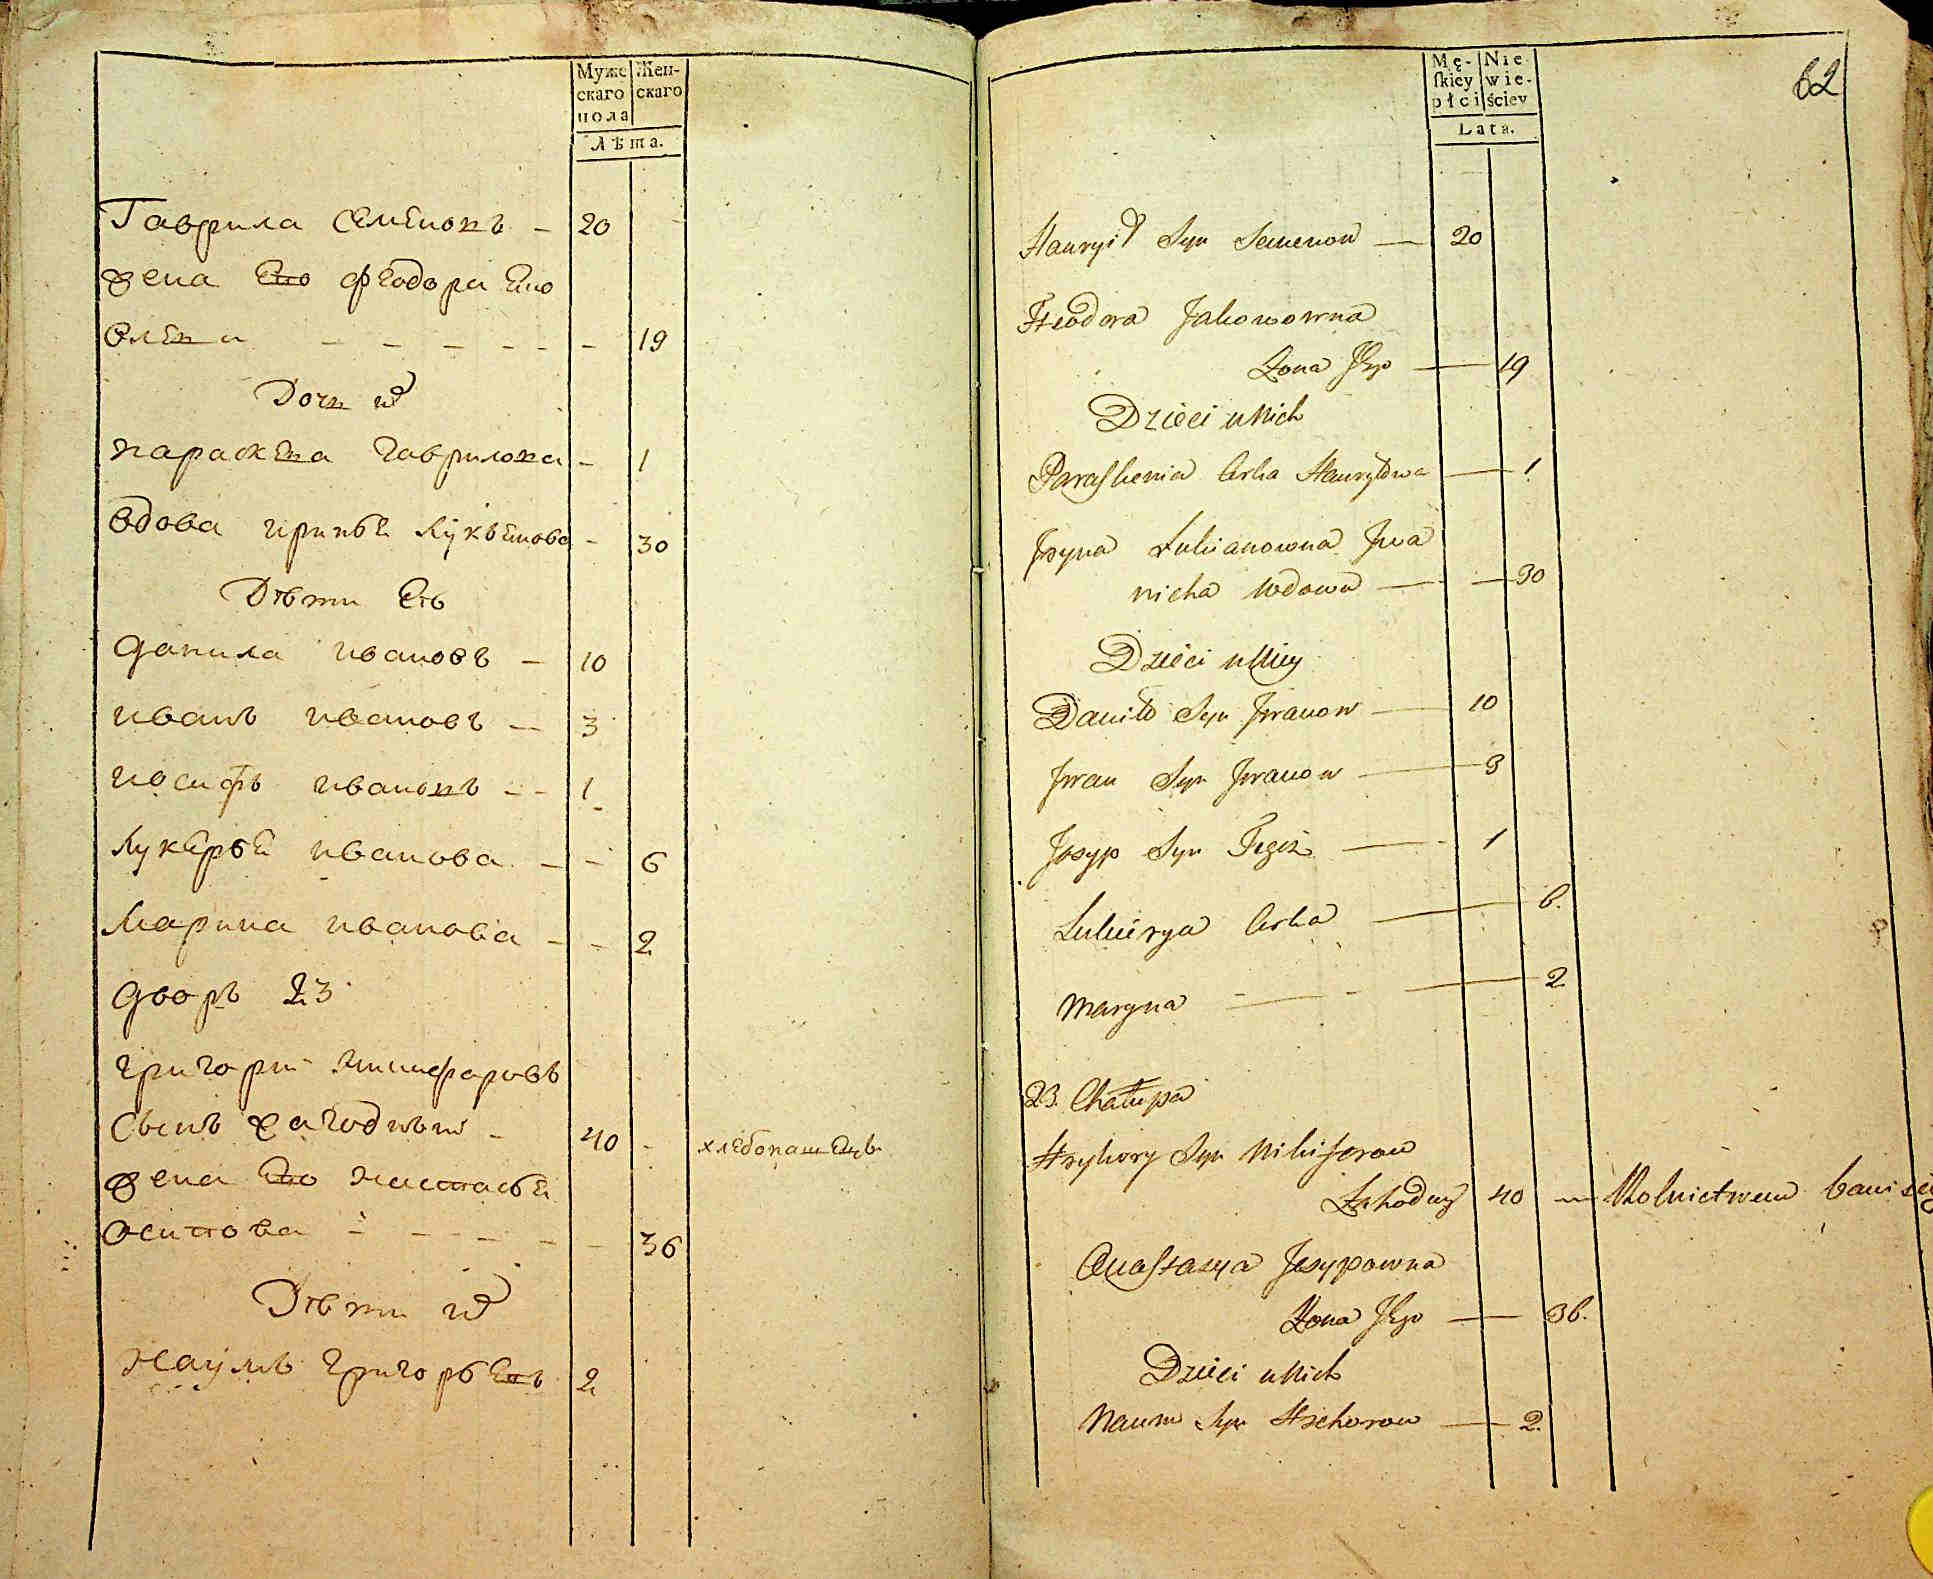 Муже
скаго
пола
Жен-
скаго
Лѣта.
Гаврила Семеновъ 20
жена Его Феодора Яко
влева 19
Дочь их
параскева Гаврилова 1
Вдова ирина Лукьянова 30
Дѣти Еѣ
Данила ивановъ 10
иванъ ивановъ 3
иосифъ ивановъ 1
Лукерья иванова 6
Марина иванова 2
Дворъ 23
григорий никифоровъ
сынъ загодный 40 хлебопашецъ
жена Его настасья
осипова 36
Дѣти их
наумъ григорьевъ 2
62
Mę-
skiey
płci
Nie
wie-
ściey
Lata.
Hauryił Syn Semenow 20
Fieodora Jakowowna
Zona Jego 19
Dzieci u Nich
Paraskewia Corka Hauryłowa 1
Jryna Łukianowna Jwa
nicha Wdowa 30
Dzieci u Niey
Daniło Syn Jwanow 10
Jwan Syn Jwanow 3
Josyp Syn Tegoż 1
Łukierya Corka 6.
Maryna 2
23. Chałupa
Hryhory Syn Nikiforow
Zahodny 40 Rolnictwem bawi się
Anastazya Josypowna
Zona Jego 36.
Dzieci u Nich
Naum Syn Hrehorow 2.